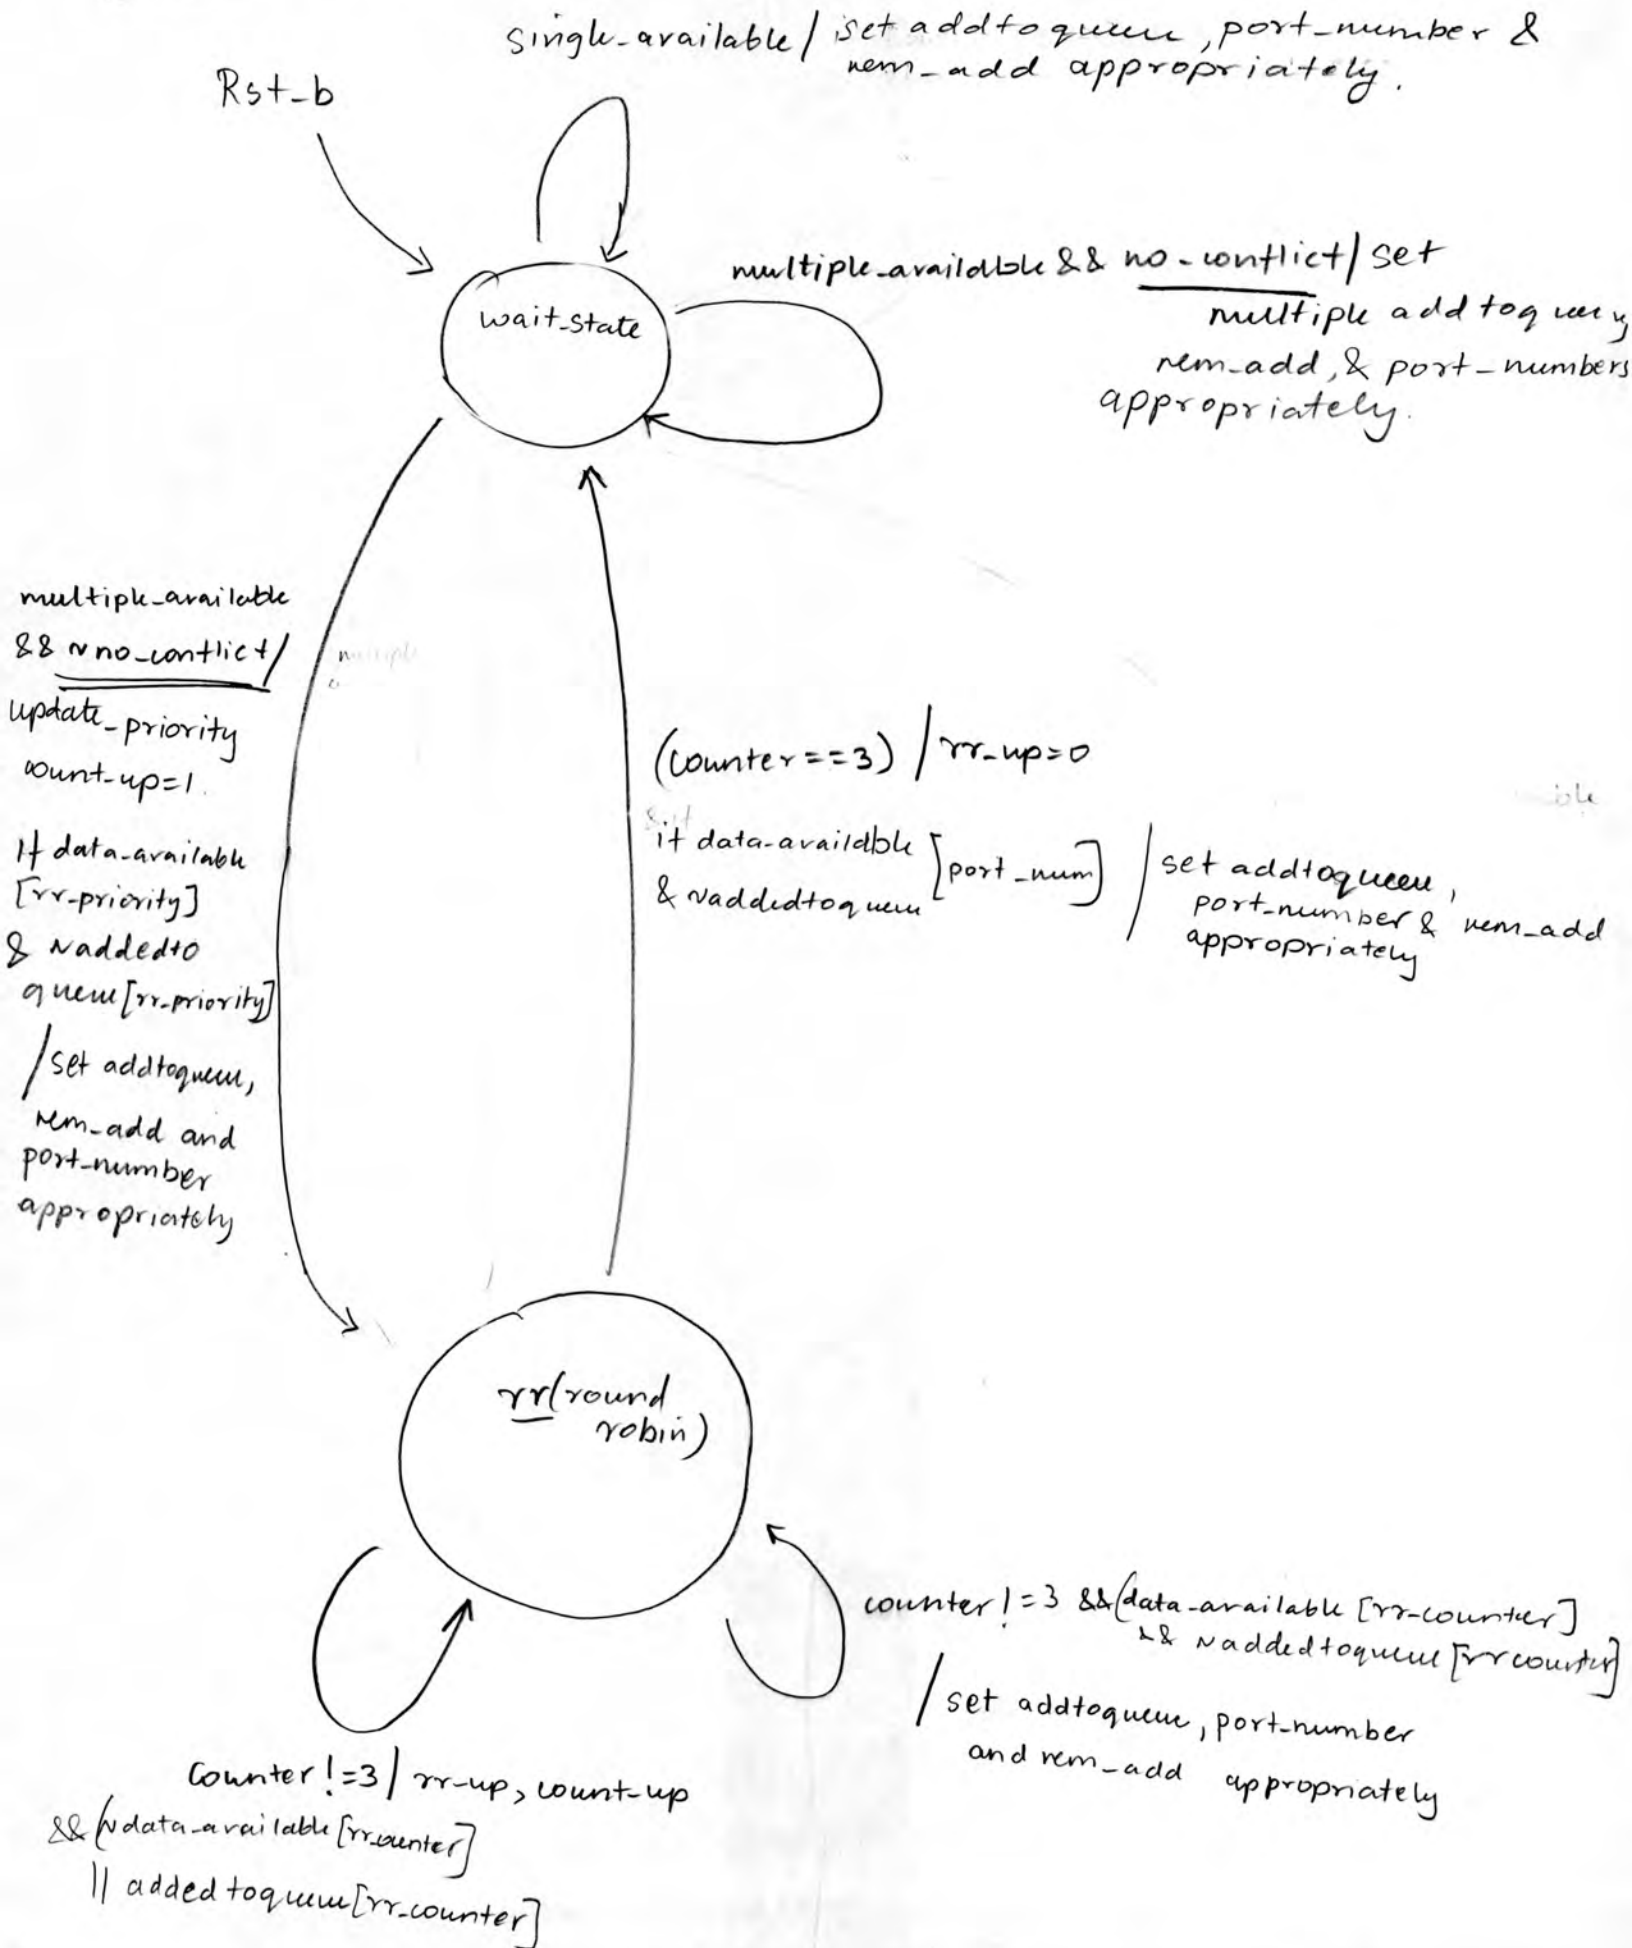 single_available / set addtoqueue, port_number &
rem_add appropriately.
Rst_b
multiple_available && no_conflict / set
multiple addtoqueue,
rem_add, & port_numbers
appropriately.
wait_state
multiple_available
&& ~no_conflict /
update_priority
count_up=1.
If data_available
[rr_priority]
& ~addedto
queue[rr_priority]
/ set addtoqueue,
rem_add and
port_number
appropriately
(counter==3) / rr_up=0
if data_available
& ~addedtoqueue [port_num] / set addtoqueue,
port_number & rem_add
appropriately
rr(round
robin)
counter!=3 && (data_available [rr_counter]
&& ~addedtoqueue [rrcounter]
/ set addtoqueue, port_number
and rem_add appropriately
Counter!=3 / rr_up, count_up
&& (~data_available [rr_counter]
|| addedtoqueue[rr_counter]